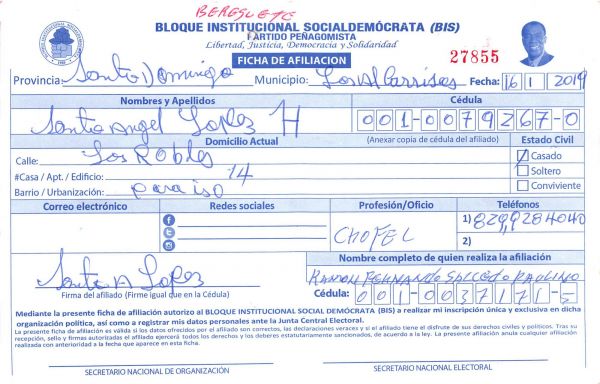 BEREGUETE
BLOQUE INSTITUCIONAL SOCIALDEMÓCRATA (BIS)
PARTIDO PEÑAGOMISTA
Libertad, Justicia, Democracia y Solidaridad
FICHA DE AFILIACION
27855
Provincia: Santo Domingo Municipio: Los Alcarrisos Fecha: 16 1 2019
Nombres y Apellidos Cédula
Santo Angel Lopez H 001-0079267-0
Domicilio Actual (Anexar copia de cédula del afiliado) Estado Civil
Calle: Los Robles Casado
#Casa / Apt. / Edificio: 14 Soltero
Barrio / Urbanización: paraiso Conviviente
Correo electrónico Redes sociales Profesión/Oficio Teléfonos
1) 829,9284040
CHOFEL 2)
Nombre completo de quien realiza la afiliación
Santo A Lopez RAMON FERNANDO SALCEDO PAULINO
Firma del afiliado (Firme igual que en la Cédula) Cédula: 001-0037171-
Mediante la presente ficha de afiliación autorizo al BLOQUE INSTITUCIONAL SOCIAL DEMÓCRATA (BIS) a realizar mi inscripción única y exclusiva en dicha
organización política, así como a registrar mis datos personales ante la Junta Central Electoral.
La presente ficha de afiliación es válida si los datos ofrecidos por el afiliado son correctos, las declaraciones veraces y si el afiliado tiene el disfrute de sus derechos civiles y políticos. Tras su
recepción, sello y firmas autorizadas el afiliado ejercerá todos los derechos y los deberes estatutariamente sancionados, de acuerdo a la ley. La presente afiliación anula cualquier afiliación
realizada con anterioridad a la fecha que aparece en esta ficha.
SECRETARIO NACIONAL DE ORGANIZACIÓN SECRETARIO NACIONAL ELECTORAL